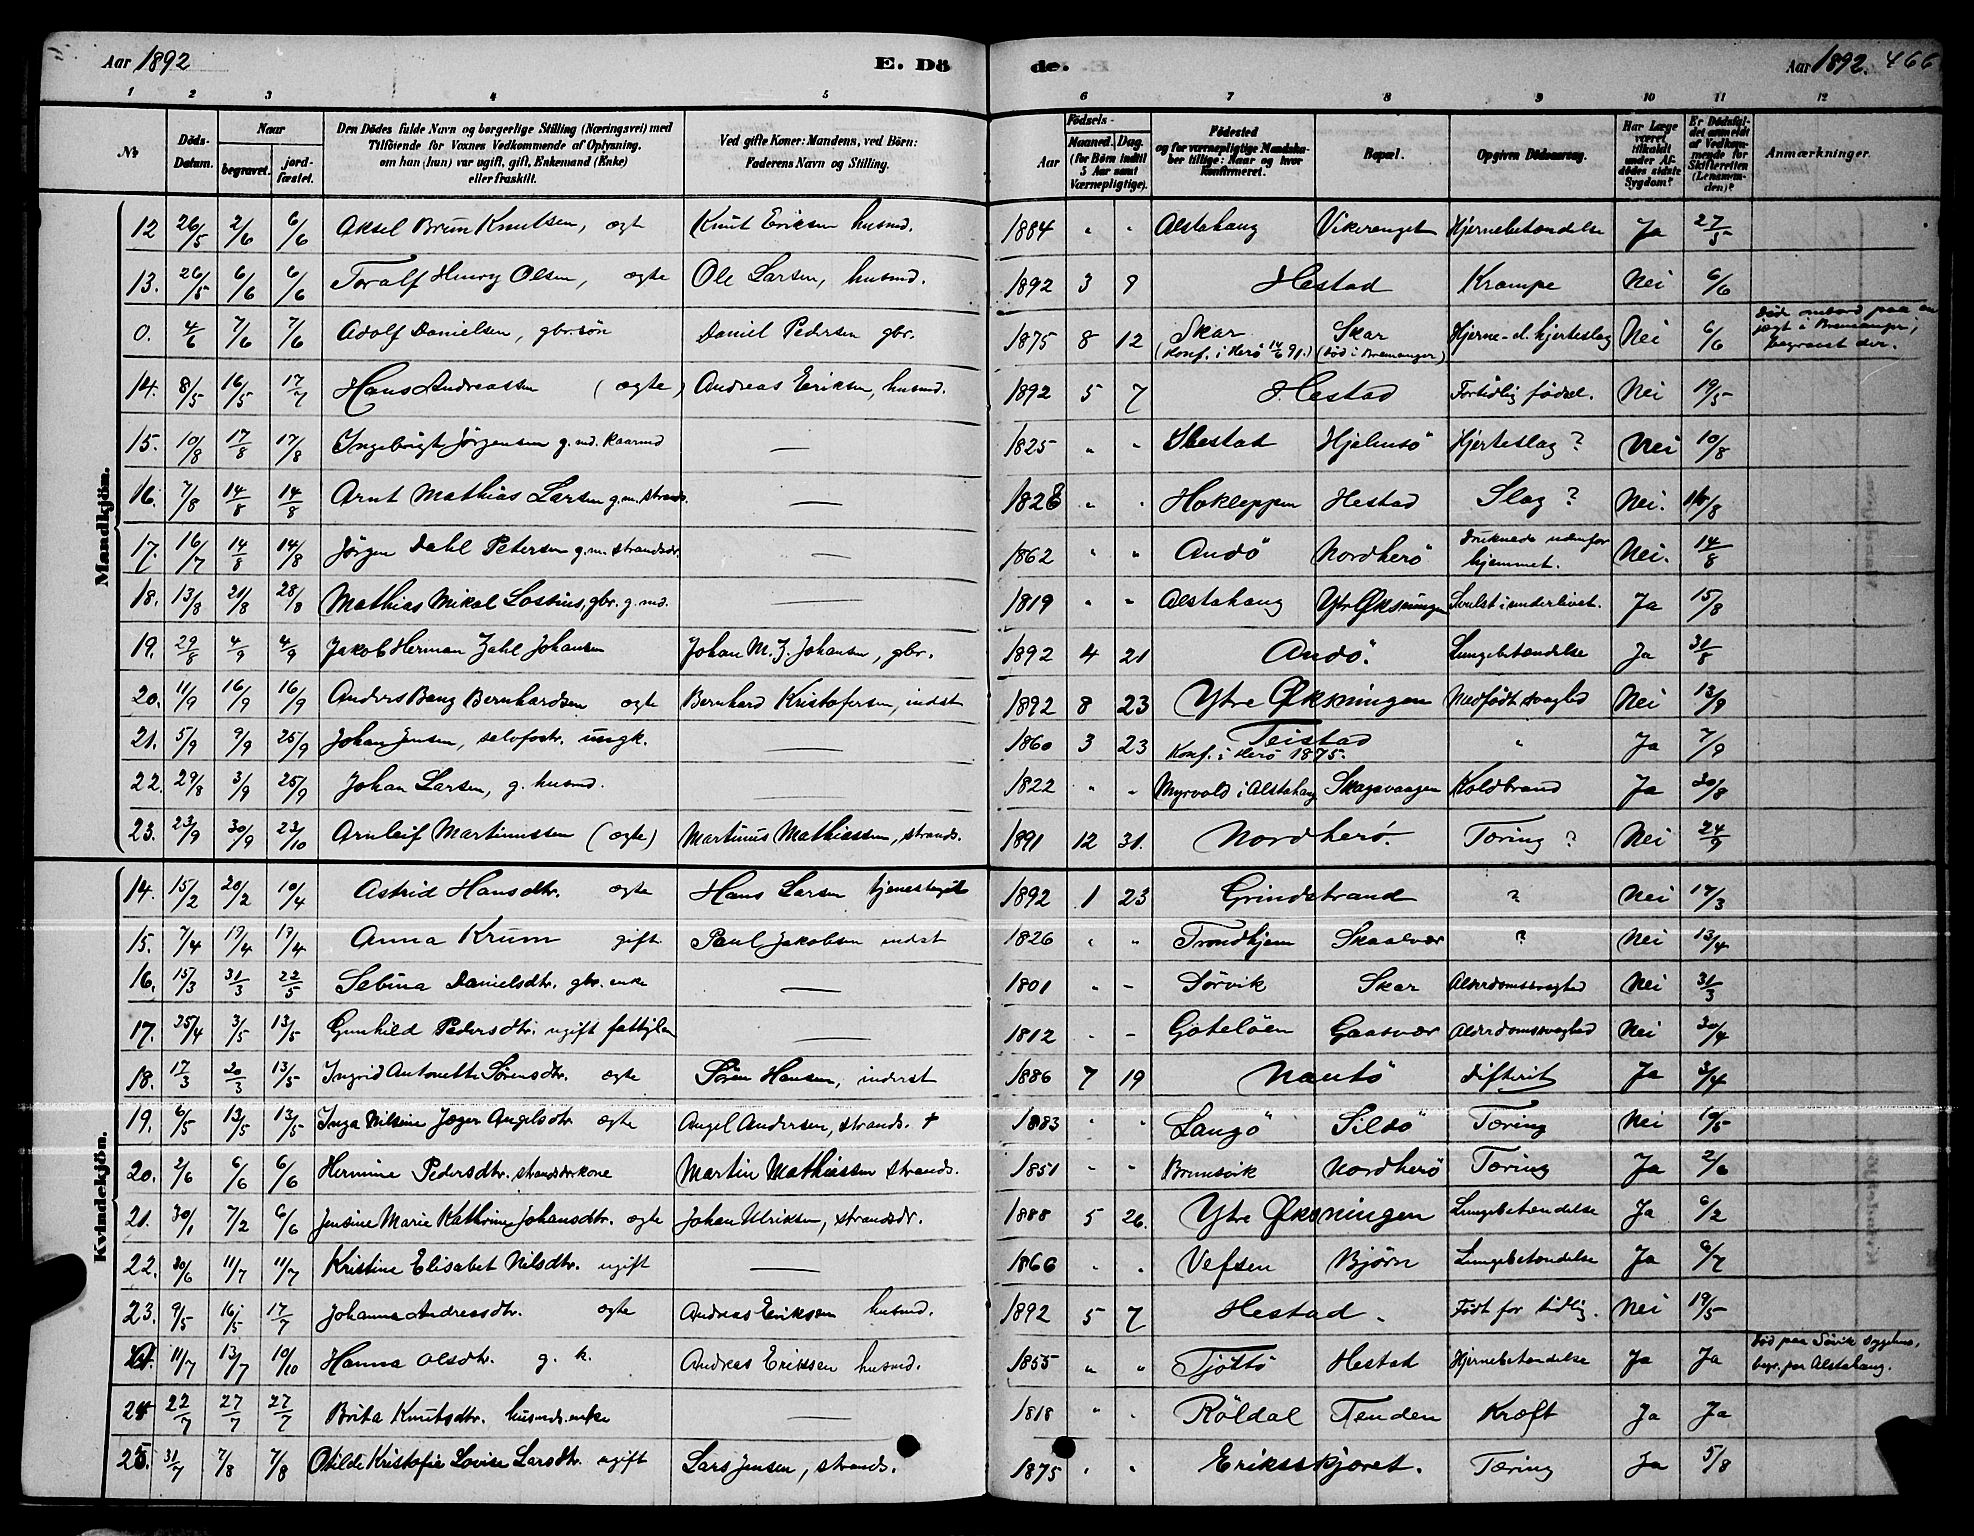 Aar 1892 E. Dö de. Aar 1892. 466
1 2 3 4 5 6 7 8 9 10 11 12
No. Döds-Datum. Naar begravet. jordfæstet. Den Dödes fulde Navn og borgerlige Stilling (Næringsvei) med Tilföiende for Voxnes Vedkommende af Oplysning, om han (hun) var ugift, gift, Enkemand (Enke) eller fraskilt. Ved gifte Koner: Mandens, ved Börn: Faderens Navn og Stilling. Födsels- Aar Maaned. Dag. (for Börn indtil 5 Aar samt Værnepligtige). Födested og for værnepligtige Mandskaber tillige: Naar og hvor konfirmeret. Bopæl. Opgiven Dödsaarsag. Har Læge været tilkaldt under Afdödes sidste Sygdom? Er Dödsfaldet anmeldt af Vedkommende for Skifteretten (Lensmanden)? Anmærkninger.
Mandkjön.
12 26/5 2/6 6/6 Aksel Brun Knutsen, ægte Knut Eriksen husmd. 1884 " " Alstahaug Vikvranget Hjernebetændelse Ja 27/5
13. 26/5 6/6 6/6 Toralf Henry Olsen, ægte Ole Larsen, husmd. 1892 3 9 Hestad Krampe Nei 6/6
0. 4/6 7/6 7/6 Adolf Danielsen, gbr.søn Daniel Pedersen gbr. 1875 8 12 Skar (Konf. i Herö 14/6 91.) Skar (död i Bremanger) Hjerne- el. hjerteslag Nei 6/6 Död ombord paa en jægt i Bremanger, begravet der.
14. 8/5 16/5 17/7 Hans Andreassen (ægte) Andreas Eriksen, husmd. 1892 5 7 Hestad Fortidlig födsel. Nei 19/5
15. 10/8 17/8 17/8 Ingebrigt Jörgensen g.md. kaarmd — 1825 " " Hestad Hjelmsö Hjerteslag? Nei 10/8
16. 7/8 14/8 14/8 Arnt Mathias Larsen g.m. strands. — 1828 " " Hokleppen Hestad Slag? Nei. 10/8
17. 16/7 14/8 14/8 Jörgen Dahl Petersen g.m. strandsdr. — 1862 " " Andö Nordherö Druknede udenfor hjemmet. Nei. 14/8
18. 13/8 21/8 28/8 Mathias Mikal Lostius, gbr. g.md. — 1819 " " Alstahaug Ytr Øksningen Svulst i underlivet. Ja 15/8
19. 29/8 4/9 4/9 Jakob Herman Zahl Johansen Johan M. Z. Johansen, gbr. 1892 4 21 Andö. Lungebetændelse Ja 31/8
20. 11/9 16/9 16/9 Anders Bang Bernhardsen ægte Bernhard Kristofersen, indst 1892 8 23 Ytre Øksningen Medfödt svaghed Nei 13/9
21. 5/9 9/9 25/9 Johan Jensen, selvfostr. ungk. — 1860 3 23 Teistad Konf. i Herö 1875. " Ja 7/9
22. 29/8 3/9 25/9 Johan Larsen, g. husmd. — 1822 " " Myrvold i Alstahaug Skagavaagen Koldbrand Ja 30/8
23. 23/9 30/9 23/10 Arnleif Martinussen (ægte) Martinus Mathiassen, strands. 1891 12 31. Nordherö. Tæring? Nei 24/9
Kvindekjön.
14. 15/2 20/2 10/4 Astrid Hansdtr. ægte Hans Larsen tjenestegut 1892 1 23 Grindstrand ? Nei 17/3
15. 7/4 17/4 17/4 Anna Krum gift Paul Jakobsen indst 1826 " " Trondhjem Skaalvær ? Nei 13/4
16. 15/3 31/3 22/5 Sebina Danielsdtr. gbr. enke — 1801 " " Dörvik Skar Alderdomssvaghed Nei 31/3
17. 25/4 3/5 13/5 Gunhild Pedersdtr. ugift fattiglem — 1812 - - Goteløen Gaasvær Alderdomssvaghed Nei 30/4
18. 17/3 20/3 13/5 Ingrid Antonette Sörensdtr. ægte Sören Hansen, inderst 1886 7 19 Nautö Difterit Ja 3/4
19. 6/5 13/5 13/5 Inga Nilsine Jæger Angelsdtr ægte Angel Andersen, strands. + 1883 " " Langö Sildö Tæring Nei 10/5
20. 2/6 6/6 6/6 Hermine Pedersdtr. strandsdrkone Martin Mathiassen strands. 1851 " " Brunsvik Nordherö Tæring Ja 2/6
21. 30/1 7/2 6/6 Jensine Marie Kathrine Johansdtr. ægte Johan Ulriksen, strandsdr. 1888 5 26. Ytre Øksningen Lungebetændelse Ja 6/2
22. 30/6 11/7 11/7 Kristine Elisabet Nilsdtr. ugift — 1866 " " Vefsen Bjørn Lungebetændelse Ja 6/7
23. 9/5 16/5 17/7 Johanna Andreasdtr. ægte Andreas Eriksen husmd. 1892 5 7 Hestad. Födt for tidlig. Nei 19/5
11/7 13/7 10/10 Hanna Olsdtr. g. k. Andreas Eriksen husmd. 1855 " " Tjöttö Hestad Hjernebetændelse Ja Ja Död paa Sövik sygehus, begr. paa Alstahaug.
24 22/7 27/7 27/7 Brita Knutsdtr. husmds.enke — 1818 " " Röldal Tenden Kræft Ja Ja
25. 31/7 7/8 7/8 Otilde Kristofie Lovise Larsdtr. ugift Lars Jensen, strands. 1875 " " Eriksskjæret. Tæring Ja 5/8